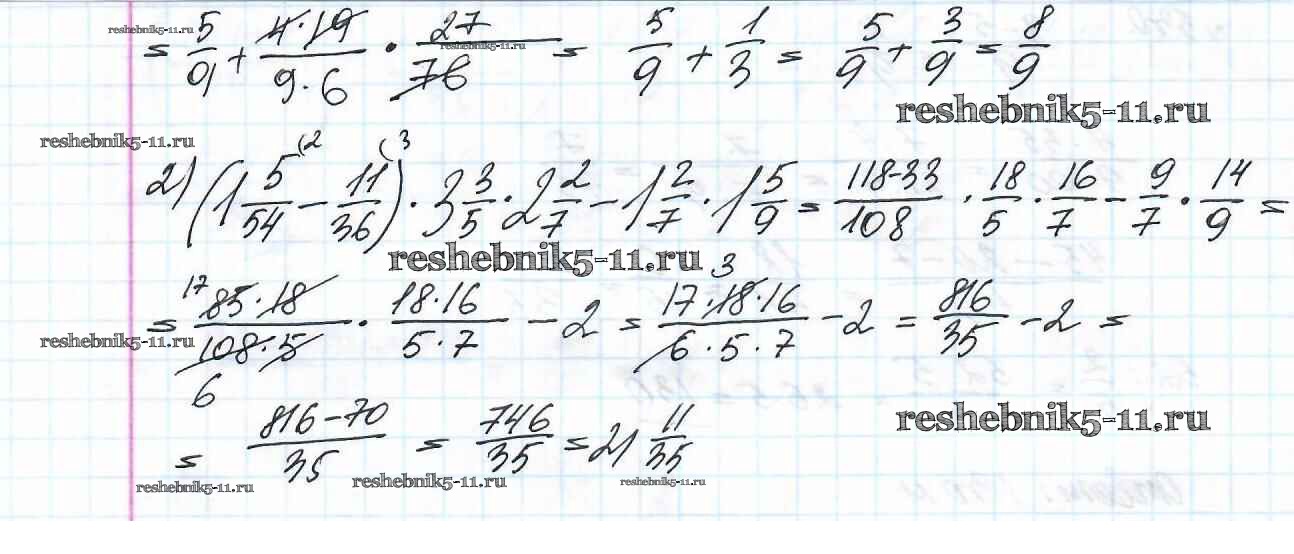 reshebnik5-11.ru
= 5/9 + 4·19/9·6 · 27/76 = 5/9 + 1/3 = 5/9 + 3/9 = 8/9
reshebnik5-11.ru
reshebnik5-11.ru
reshebnik5-11.ru
2) (1 5/54 (2 − 11/36 (3) · 3 3/5 · 2 2/7 − 1 2/7 · 1 5/9 = 118-33/108 · 18/5 · 16/7 − 9/7 · 14/9 =
reshebnik5-11.ru
= 17 85·18/108·5 6 · 18·16/5·7 − 2 = 17·18·16 3/6·5·7 − 2 = 816/35 − 2 =
reshebnik5-11.ru
= 816−70/35 = 746/35 = 21 11/35
reshebnik5-11.ru
reshebnik5-11.ru
reshebnik5-11.ru
reshebnik5-11.ru